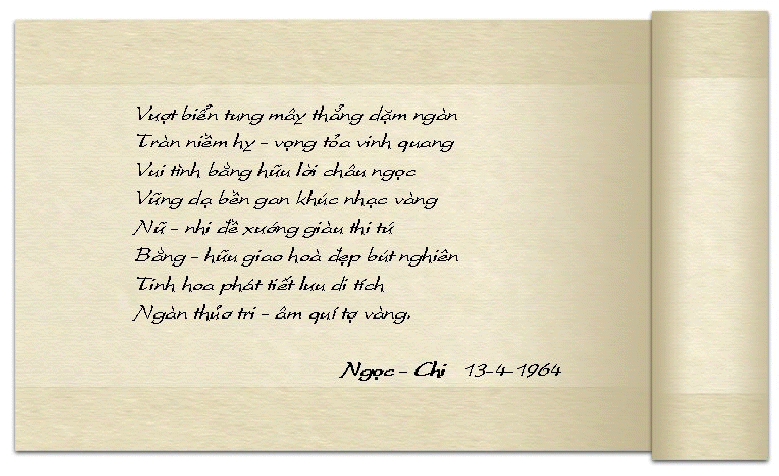 Vượt biển tung mây thẳng dặm ngàn
Tràn niềm hy - vọng tỏa vinh quang
Vui tình bằng hữu lời châu ngọc
Vững dạ bền gan khúc nhạc vàng
Nữ - nhi đề xướng giàu thi tứ
Bằng - hữu giao hoà đẹp bút nghiên
Tinh hoa phát tiết lưu di tích
Ngàn thủơ tri - âm quí tợ vàng.
Ngọc - Chi 13-4-1964